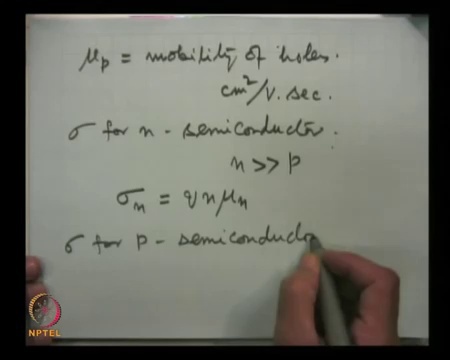 μp = mobility of holes.
cm²/V.sec.
σ for n - semiconductor.
n >> p
σn = q n μn
σ for p - semiconducto
NPTEL